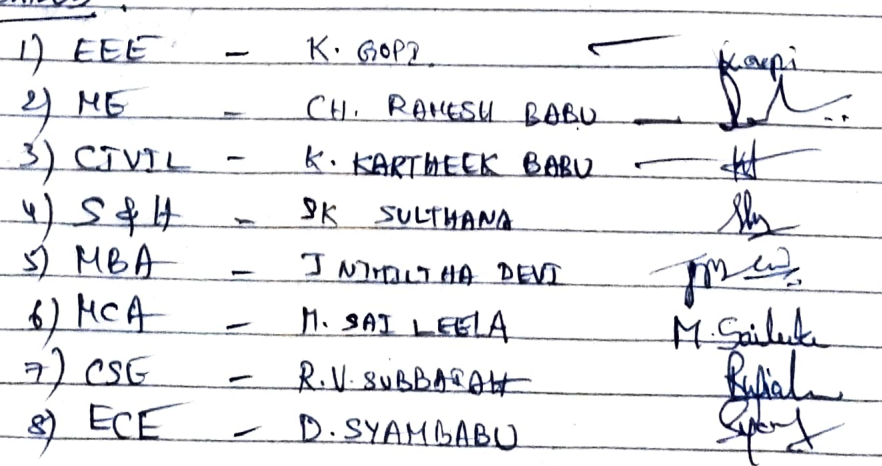 1) EEE - K. GOPI Kgopi
2) ME - CH. RAMESH BABU -
3) CIVIL - K. KARTHEEK BABU -
4) S & H - SK SULTHANA
5) MBA - J NIMILTHA DEVI
6) MCA - M. SAI LEELA M. Saileela
7) CSE - R.V. SUBBARAH
8) ECE - D. SYAMBABU